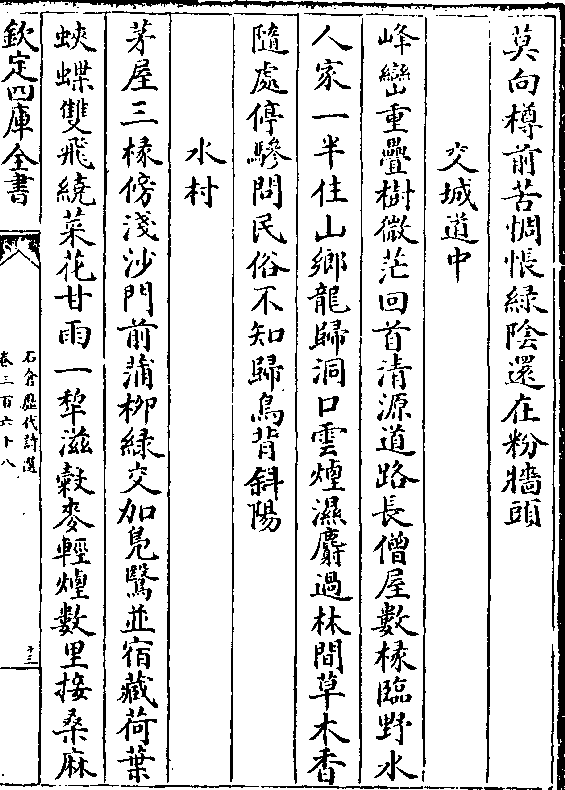 莫向樽前苦惆悵綠陰還在粉牆頭
交城道中
峰巒重疊樹微茫回首清源道路長僧屋數椽臨野水
人家一半住山鄉龍歸洞口雲煙濕麝過林間草木香
隨處停驂問民俗不知歸鳥背斜陽
水村
茅屋三椽傍淺沙門前蒲柳綠交加鳧鷖並宿藏荷葉
蛺蝶雙飛繞菜花甘雨一犂滋穀麥輕煙數里接桑麻
欽定四庫全書
石倉歷代詩選
卷三百六十八
十三